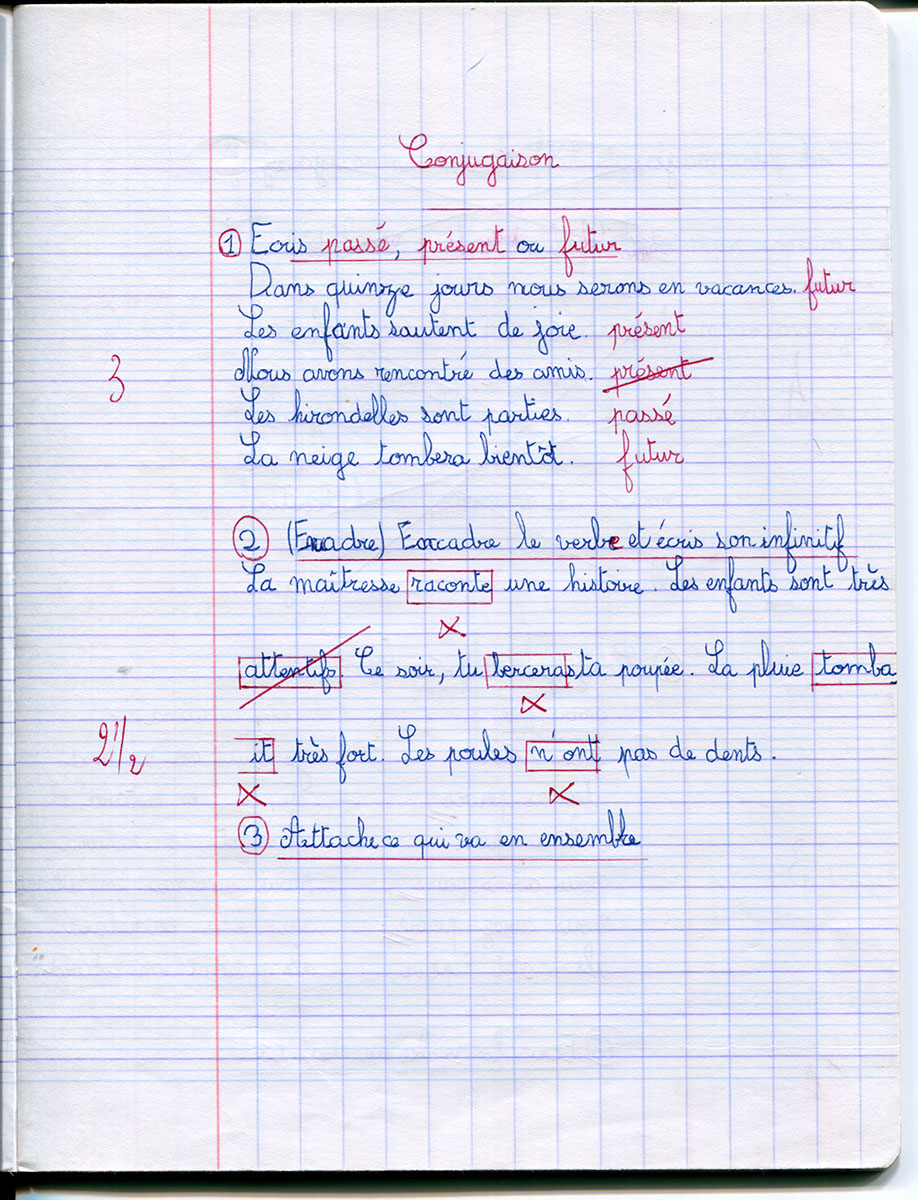 Conjugaison
① Ecris passé, présent ou futur
Dans quinze jours nous serons en vacances. futur
Les enfants sautent de joie. présent
3
Nous avons rencontré des amis. présent
Les hirondelles sont parties. passé
La neige tombera bientôt. futur
② (Encadre) Encadre le verbe et écris son infinitif
La maîtresse raconte une histoire. Les enfants sont très
attentifs. Ce soir, tu berceras ta poupée. La pluie tomba
2 1/2
it très fort. Les poules n'ont pas de dents.
③ Attache ce qui va en ensemble